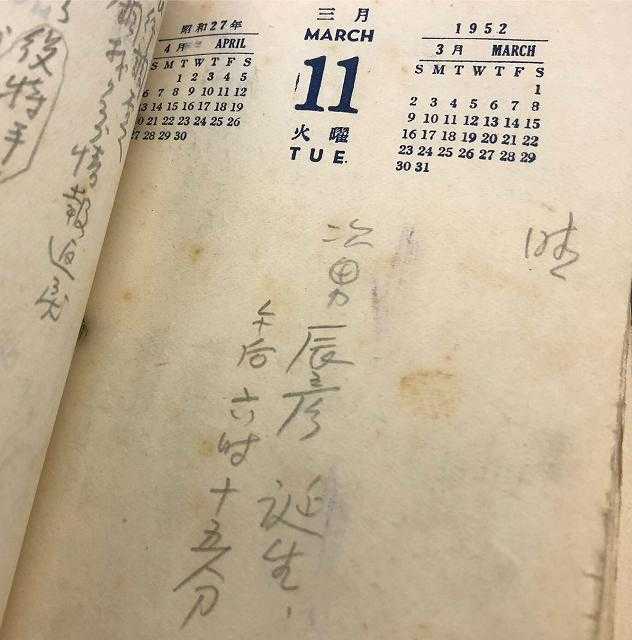 三月
MARCH
11
火曜
TUE.
1952
3月 MARCH
S M T W T F S
1
2 3 4 5 6 7 8
9 10 11 12 13 14 15
16 17 18 19 20 21 22
23 24 25 26 27 28 29
30 31
昭和27年
4月 APRIL
S M T W T F S
1 2 3 4 5
6 7 8 9 10 11 12
13 14 15 16 17 18 19
20 21 22 23 24 25 26
27 28 29 30
晴
次男 辰彦 誕生、
午后六時十五分